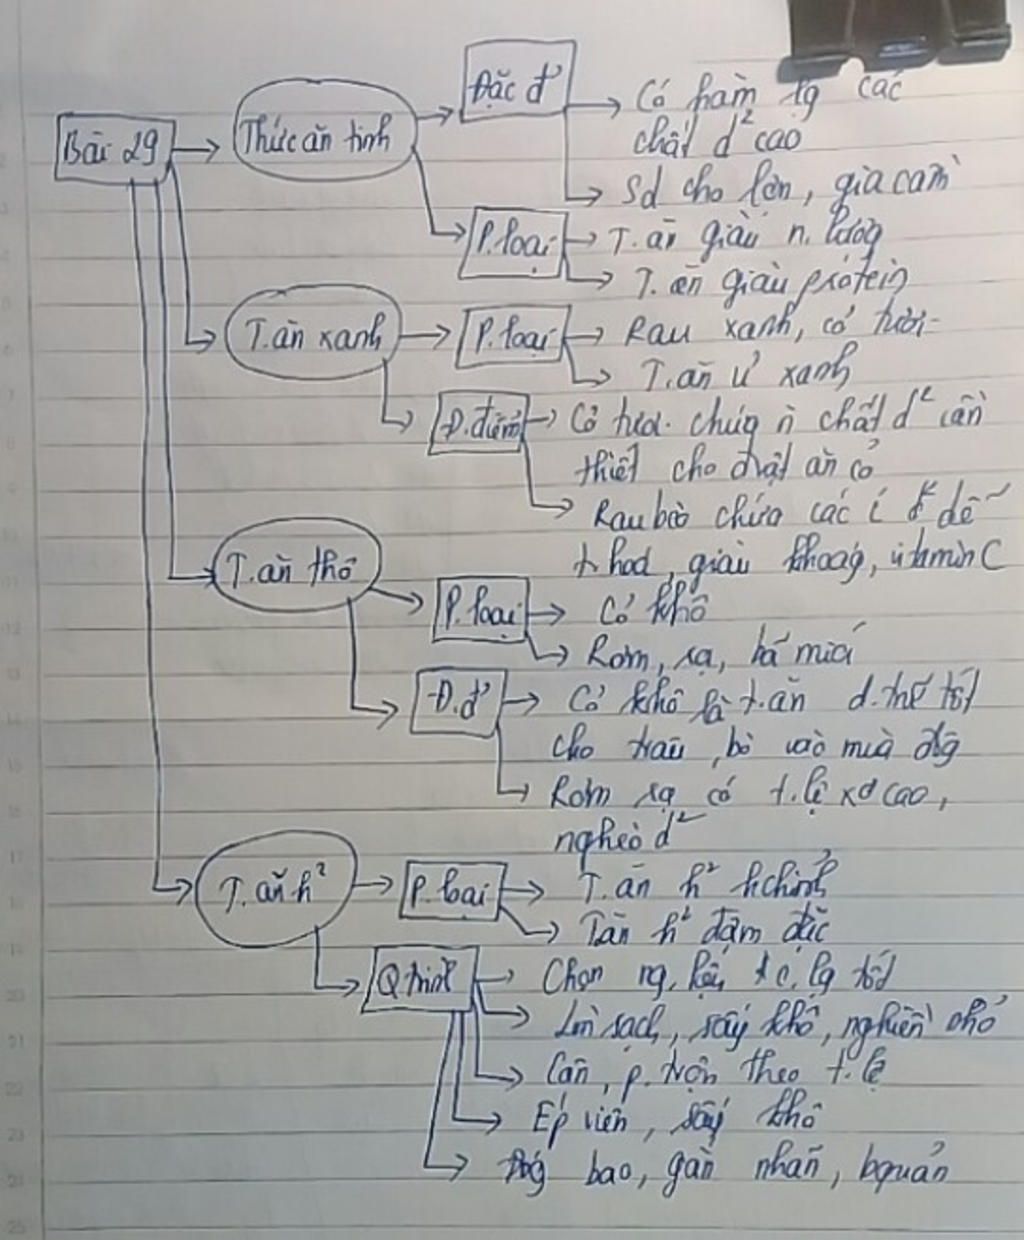 Bài 29
Thức ăn tinh
Đặc đ'
Có hàm lg các
chất d² cao
Sd cho lợn, gia cầm
P. loại
T. ăn giàu n. lượng
T. ăn giàu protein
T. ăn xanh
P. loại
Rau xanh, cỏ tươi
T. ăn ủ xanh
Đ. điểm
Cỏ tươi chứa chất d² cần
thiết cho đvật ăn cỏ
Rau bèo chứa các dễ
t. hoá, giàu khoág, vitamin C
T. ăn thô
P. loại
Cỏ khô
Rơm, rạ, bã mía
Đ. đ'
Cỏ khô là t. ăn d. trữ tốt
cho trâu, bò vào mùa đôg
Rơm rạ có t. lệ xơ cao,
nghèo d²
T. ăn h²
P. loại
T. ăn h² hchỉnh
T ăn h² đậm đặc
Q trình
Chọn ng. liệu c. lg tốt
Làm sạch, sấy khô, nghiền nhỏ
Cân, p. trộn theo t. lệ
Ép viên, sấy khô
Đóg bao, gắn nhãn, bquản